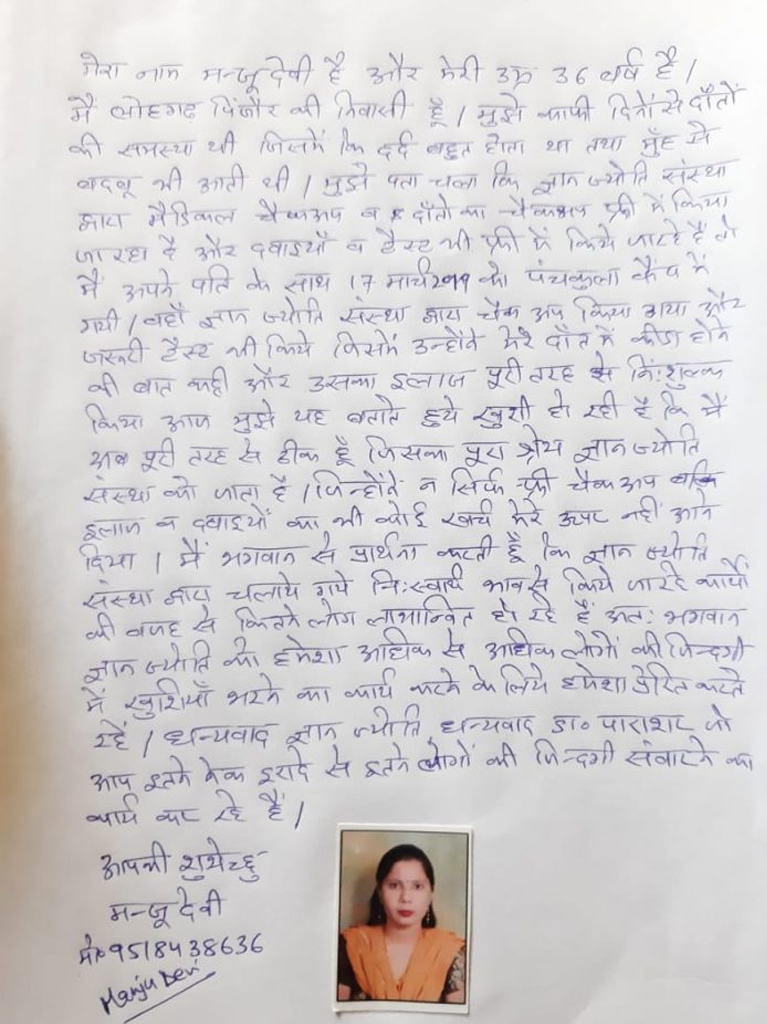 मेरा नाम मन्जू देवी है और मेरी उम्र 36 वर्ष है /
मैं लोहगढ पिंजौर की निवासी हूँ / मुझे काफी दिनों से दाँतों
की समस्या थी जिसमें कि दर्द बहुत होता था तथा मुँह से
बदबू भी आती थी / मुझे पता चला कि ज्ञान ज्योति संस्था
द्वारा मैडिकल चैकअप व दाँतो का चैकअप फ्री में किया
जा रहा है और दवाइयाँ व टैस्ट भी फ्री में किये जा रहे हैं तो
मैं अपने पति के साथ 17 मार्च को पंचकुला कैंप में
गयी / वहाँ ज्ञान ज्योति संस्था द्वारा चैक अप किया गया और
जरूरी टैस्ट भी किये जिसमें उन्होंने मेरे दाँत में कीडा होने
की बात कही और उसका इलाज पूरी तरह से नि:शुल्क
किया आज मुझे यह बताते हुये खुशी हो रही है कि मैं
अब पूरी तरह से ठीक हूँ जिसका पूरा श्रेय ज्ञान ज्योति
संस्था को जाता है / जिन्होंने न सिर्फ फ्री चैकअप बल्कि
इलाज व दवाइयों का भी कोई खर्च मेरे ऊपर नहीं आने
दिया / मैं भगवान से प्रार्थना करती हूँ कि ज्ञान ज्योति
संस्था द्वारा चलाये गये नि:स्वार्थ भाव से किये जा रहे कार्यो
की वजह से कितने लोग लाभान्वित हो रहे हैं अत: भगवान
ज्ञान ज्योति को हमेशा अधिक से अधिक लोगों की जिन्दगी
में खुशियाँ भरने का कार्य करने के लिये हमेशा प्रेरित करते
रहें / धन्यवाद ज्ञान ज्योति, धन्यवाद डा० पाराशर जो
आप इतने नेक इरादे से इतने लोगों की जिन्दगी संवारने का
कार्य कर रहे हैं /
आपकी शुभेच्छु
मन्जू देवी
मो० 9518438636
Manju Devi